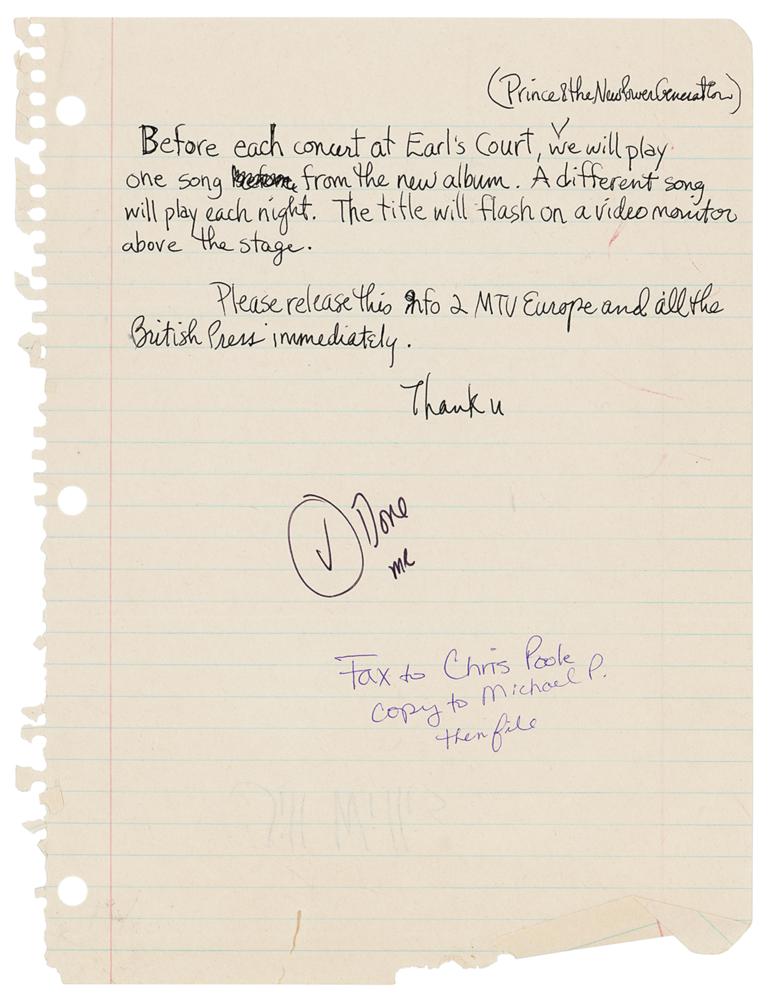 (Prince & the New Power Generation)
Before each concert at Earl's Court, we will play
one song before from the new album. A different song
will play each night. The title will flash on a video monitor
above the stage.
Please release this info 2 MTV Europe and all the
British Press immediately.
Thank u
✓ Done
me
Fax to Chris Poole
copy to Michael P.
then file